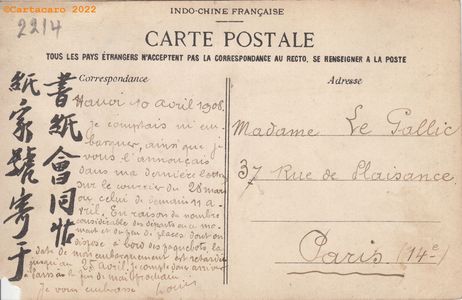 ©Cartacaro 2022
2214
INDO-CHINE FRANÇAISE
CARTE POSTALE
TOUS LES PAYS ÉTRANGERS N'ACCEPTENT PAS LA CORRESPONDANCE AU RECTO, SE RENSEIGNER A LA POSTE
Correspondance
Adresse
書紙會同帖
紙家號寄于
Hanoi 10 avril 1908.
Je comptais m'em
barquer, ainsi que je
vous l'annonçais
dans ma dernière lettre
sur le courrier du 28 mars
ou celui de demain 11 a-
vril. En raison du nombre
considérable des départs en ce mo-
ment et du peu de places dont on
dispose à bord des paquebots la
date de mon embarquement est retardée
jusqu'au 25 avril. Je compte donc arriver
à Paris à la fin de mai prochain.
Je vous embrasse
Louis
Madame Le Gallic
37 Rue de Plaisance
Paris (14e)